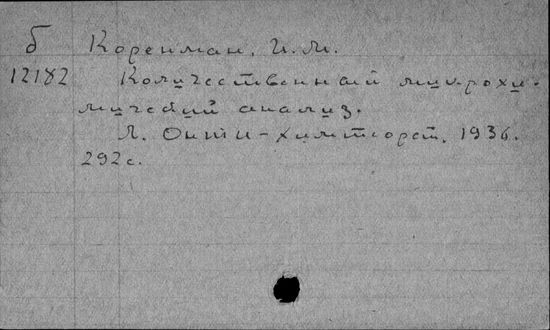 б Коренман, И. М.
12182 Количественный микрохи-
мический анализ.
Л. Онти-Химтеорет, 1936.
292 с.